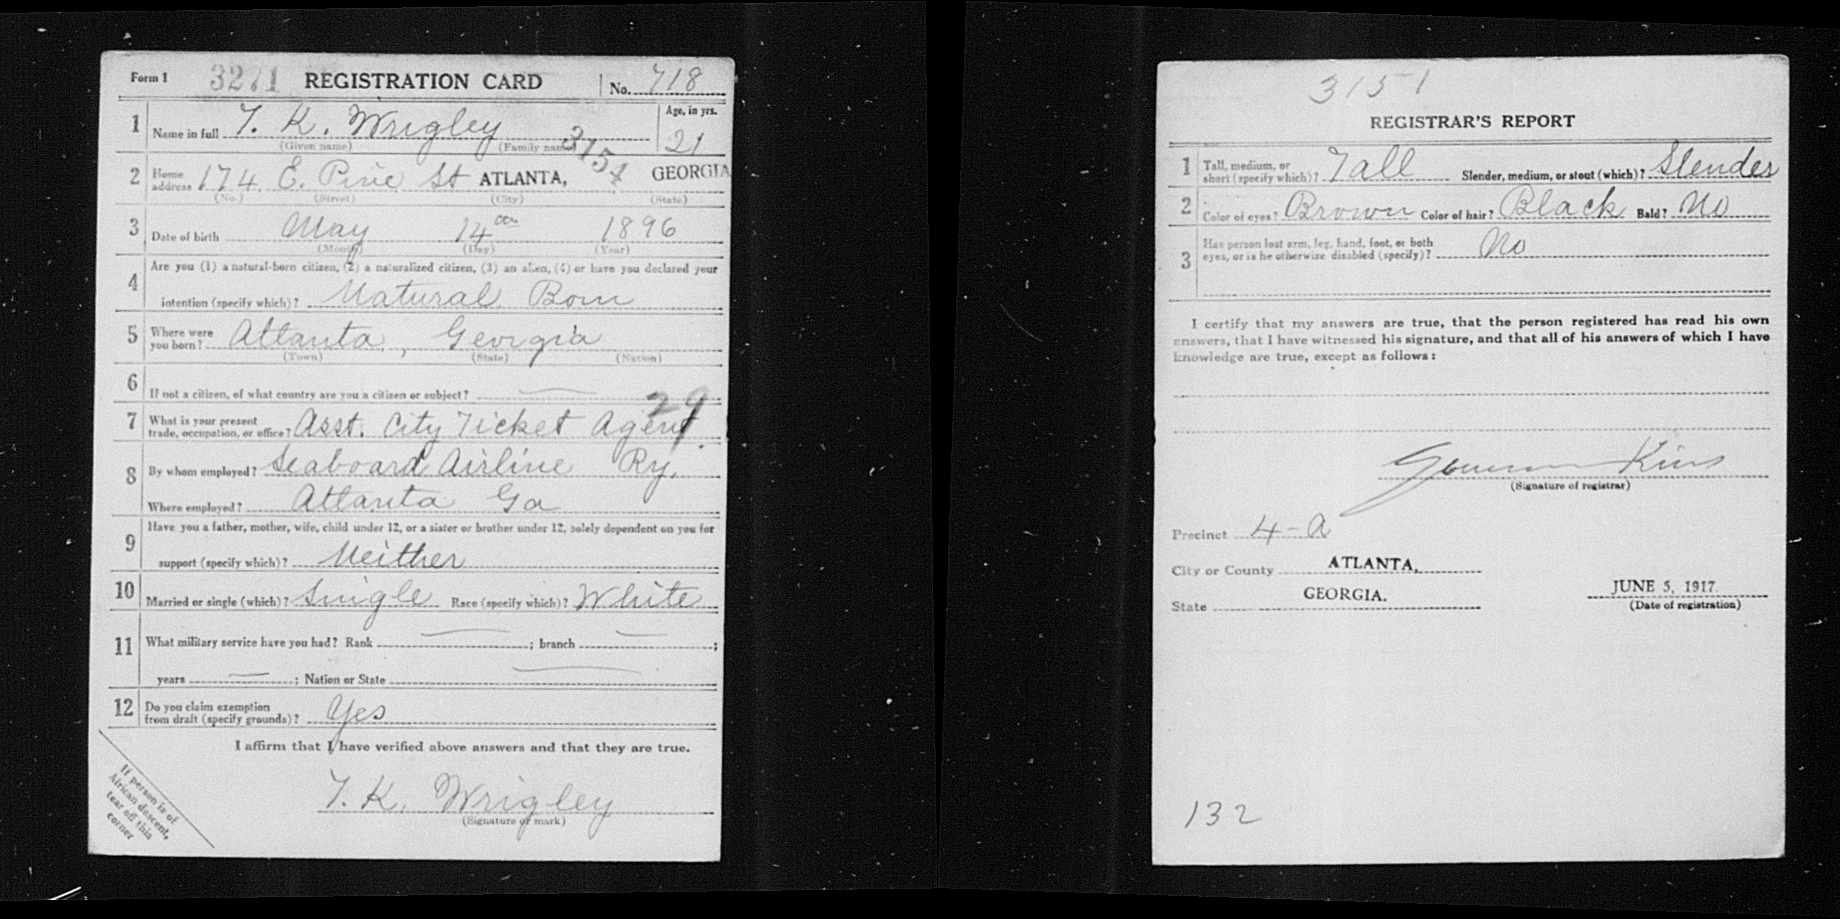 Form 1 3271 REGISTRATION CARD No. 718
1 Name in full T. K. Wrigley Age, in yrs. 21
(Given name) (Family name) 3151
2 Home address 174 E. Pine St ATLANTA, GEORGIA
(No.) (Street) (City) (State)
3 Date of birth May 14th 1896
(Month) (Day) (Year)
4 Are you (1) a natural-born citizen, (2) a naturalized citizen, (3) an alien, (4) or have you declared your
intention (specify which)? Natural Born
5 Where were you born? Atlanta, Georgia
(Town) (State) (Nation)
6 If not a citizen, of what country are you a citizen or subject?
29
7 What is your present trade, occupation, or office? Asst. City Ticket Agent.
8 By whom employed? Seaboard Airline Ry.
Where employed? Atlanta Ga
9 Have you a father, mother, wife, child under 12, or a sister or brother under 12, solely dependent on you for
support (specify which)? Neither
10 Married or single (which)? Single Race (specify which)? White
11 What military service have you had? Rank ; branch ;
years ; Nation or State
12 Do you claim exemption from draft (specify grounds)? Yes
I affirm that I have verified above answers and that they are true.
T. K. Wrigley
(Signature or mark)
If person is of
African descent,
tear off this
corner
3151
REGISTRAR'S REPORT
1 Tall, medium, or short (specify which)? Tall Slender, medium, or stout (which)? Slender
2 Color of eyes? Brown Color of hair? Black Bald? No
3 Has person lost arm, leg, hand, foot, or both
eyes, or is he otherwise disabled (specify)? No
I certify that my answers are true, that the person registered has read his own
answers, that I have witnessed his signature, and that all of his answers of which I have
knowledge are true, except as follows:
(Signature of registrar)
Precinct 4-A
City or County ATLANTA,
State GEORGIA. JUNE 5, 1917.
(Date of registration)
132